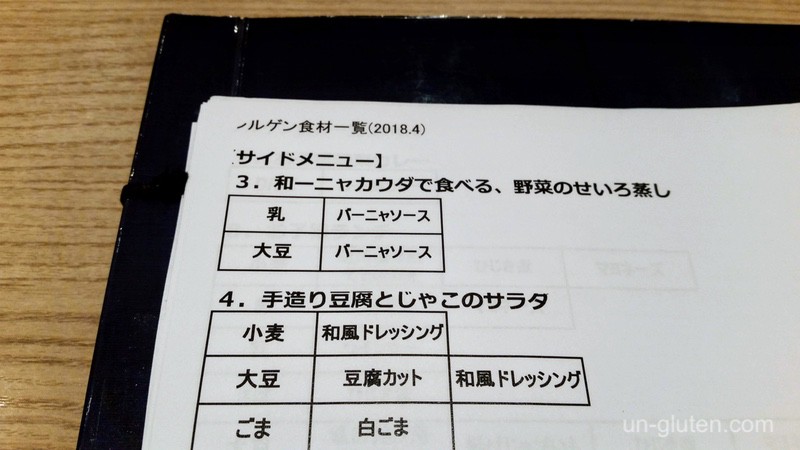 レルゲン食材一覧(2018.4)
【サイドメニュー】
3．和ーニャカウダで食べる、野菜のせいろ蒸し
乳 バーニャソース
大豆 バーニャソース
4．手造り豆腐とじゃこのサラダ
小麦 和風ドレッシング
大豆 豆腐カット 和風ドレッシング
ごま 白ごま
un-gluten.com